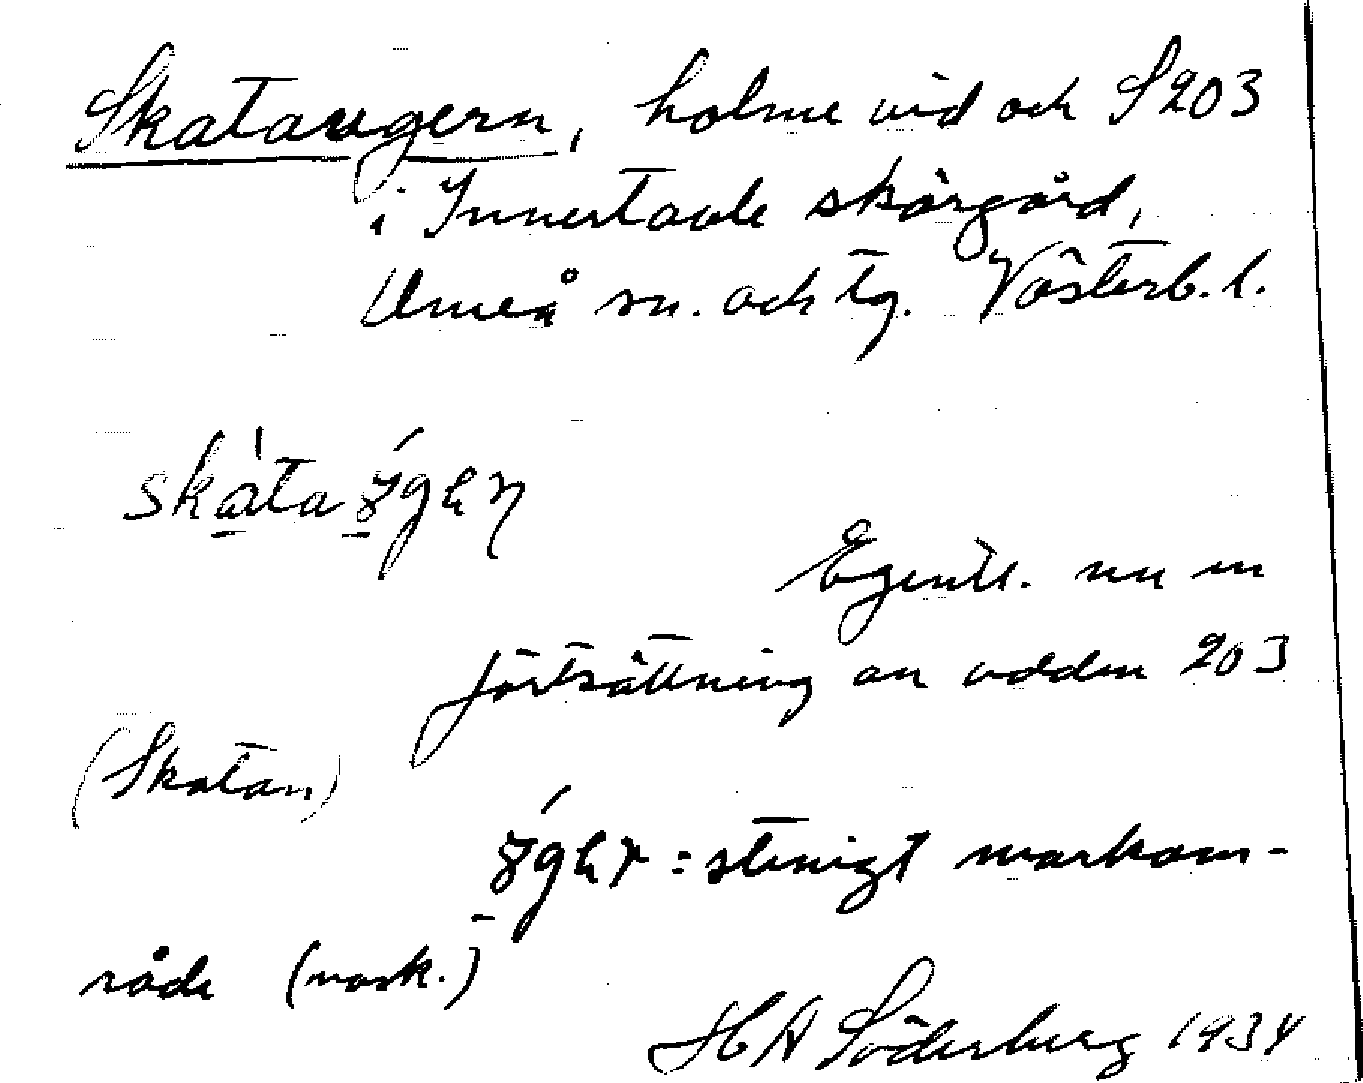 Skataugern, holme vid och S 203
i Innertavle skärgård,
Umeå sn. och tg. Västerb. l.
Egentl. nu en
fortsättning av udden 203
(Skatan)
= stenigt markom-
råde (mask.)
H A Söderberg 1934